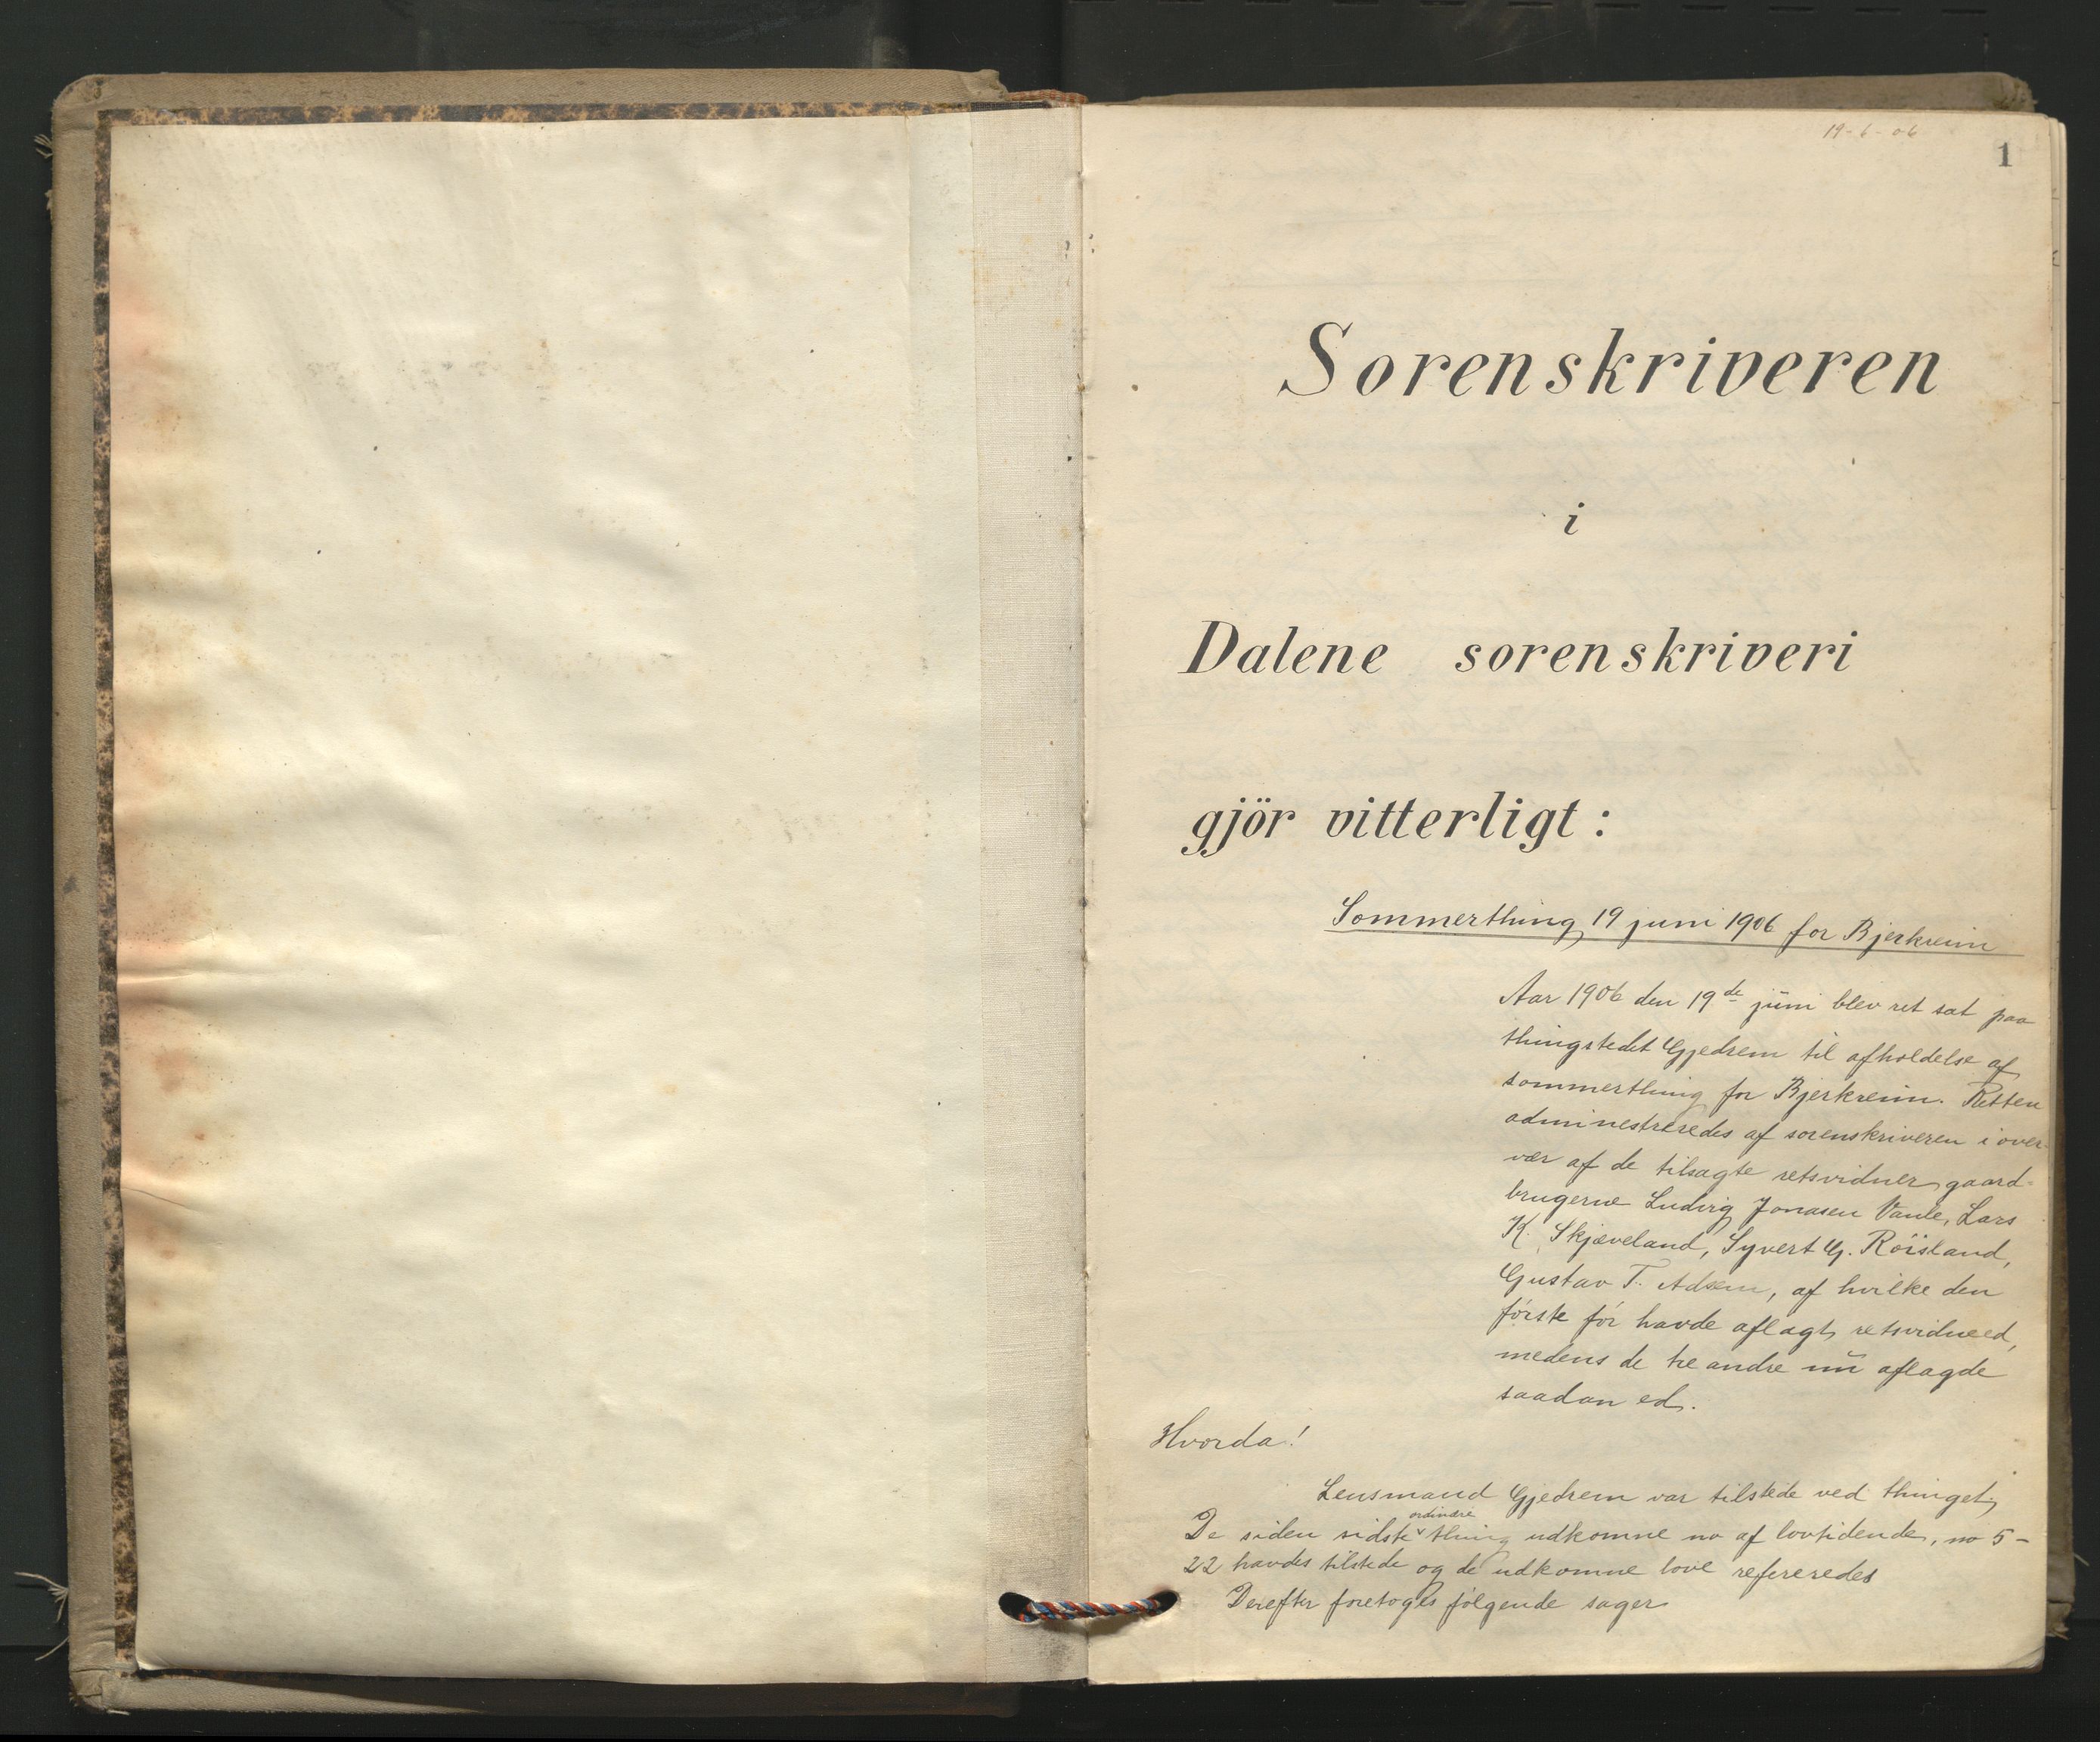 19-6-06
1
Sorenskriveren
i
Dalene sorenskriveri
gjör vitterligt:
Sommerthing 19 juni 1906 for Bjerkreim
Aar 1906 den 19de juni blev ret sat paa
thingstedet Gjedrem til afholdelse af
sommerthing for Bjerkreim. Retten
administreredes af sorenskriveren i over-
vær af de tilsagte retsvidner gaard-
brugerne Ludvig Jonasen Vaule, Lars
K. Skjæveland, Syvert G. Röisland,
Gustav T. Adsem, af hvilke den
förste för havde aflagt retsvidneed,
medens de tre andre nu aflagde
saadan ed.
Hvorda!
Lensmand Gjedrem var tilstede ved thinget,
De siden sidste ordinære thing udkomne no af lovtidende, no 5-
22 havdes tilstede og de udkomne love refereredes
Derefter foretoges fölgende sager